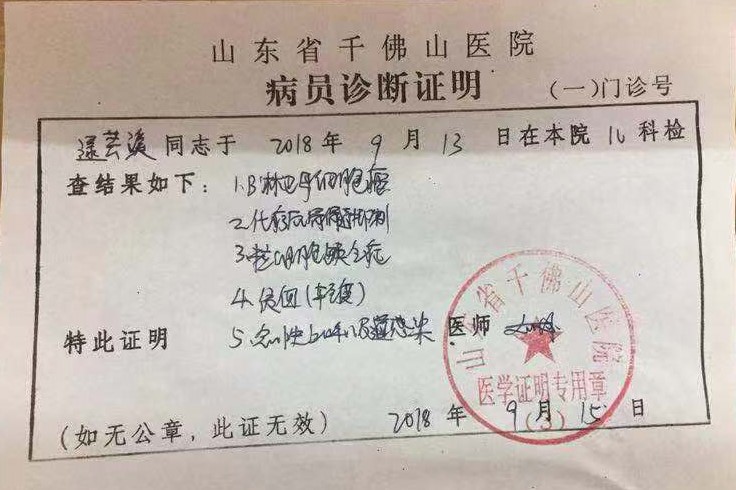 山东省千佛山医院
病员诊断证明 (一)门诊号
同志于 2018 年 9 月 13 日在本院 儿 科检
查结果如下: 1.B淋巴母细胞瘤
2.化疗后骨髓抑制
3.粒细胞缺乏症
4.贫血(轻度)
特此证明 5.急性上呼吸道感染 医师
山东省千佛山医院
医学证明专用章
(3)
(如无公章,此证无效) 2018 年 9 月 15 日